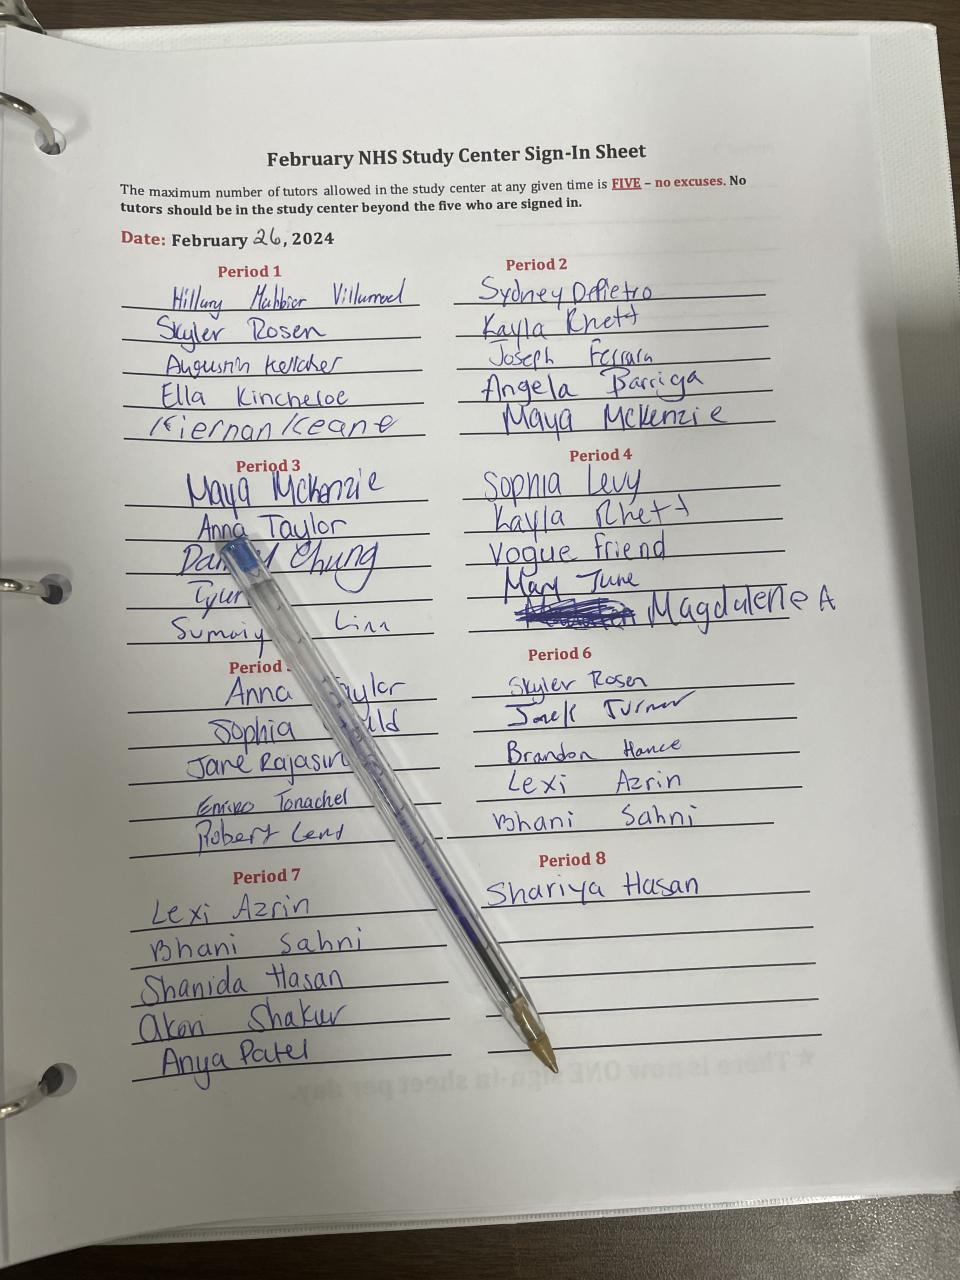 February NHS Study Center Sign-In Sheet
The maximum number of tutors allowed in the study center at any given time is FIVE – no excuses. No
tutors should be in the study center beyond the five who are signed in.
Date: February 26, 2024
Period 1
Hillary
Skyler Rosen
Augustin Kelleher
Ella Kincheloe
Kiernan Keane
Period 2
Sydney DePietro
Kayla Rhett
Joseph Ferrara
Angela Barriga
Maya McKenzie
Period 3
Maya McKenzie
Anna Taylor
Chung
Linn
Period 4
Sophia Levy
Kayla Rhett
Vogue friend
Mary June
Magdalene A
Period
Anna Taylor
Sophia
Jane
Tonachel
Robert
Period 6
Skyler Rosen
Turner
Brandon Hance
Lexi Azrin
Bhani Sahni
Period 7
Lexi Azrin
Bhani Sahni
Shanida Hasan
Akon Shakur
Anya Patel
Period 8
Shariya Hasan
★There is now ONE sign-in sheet per day.